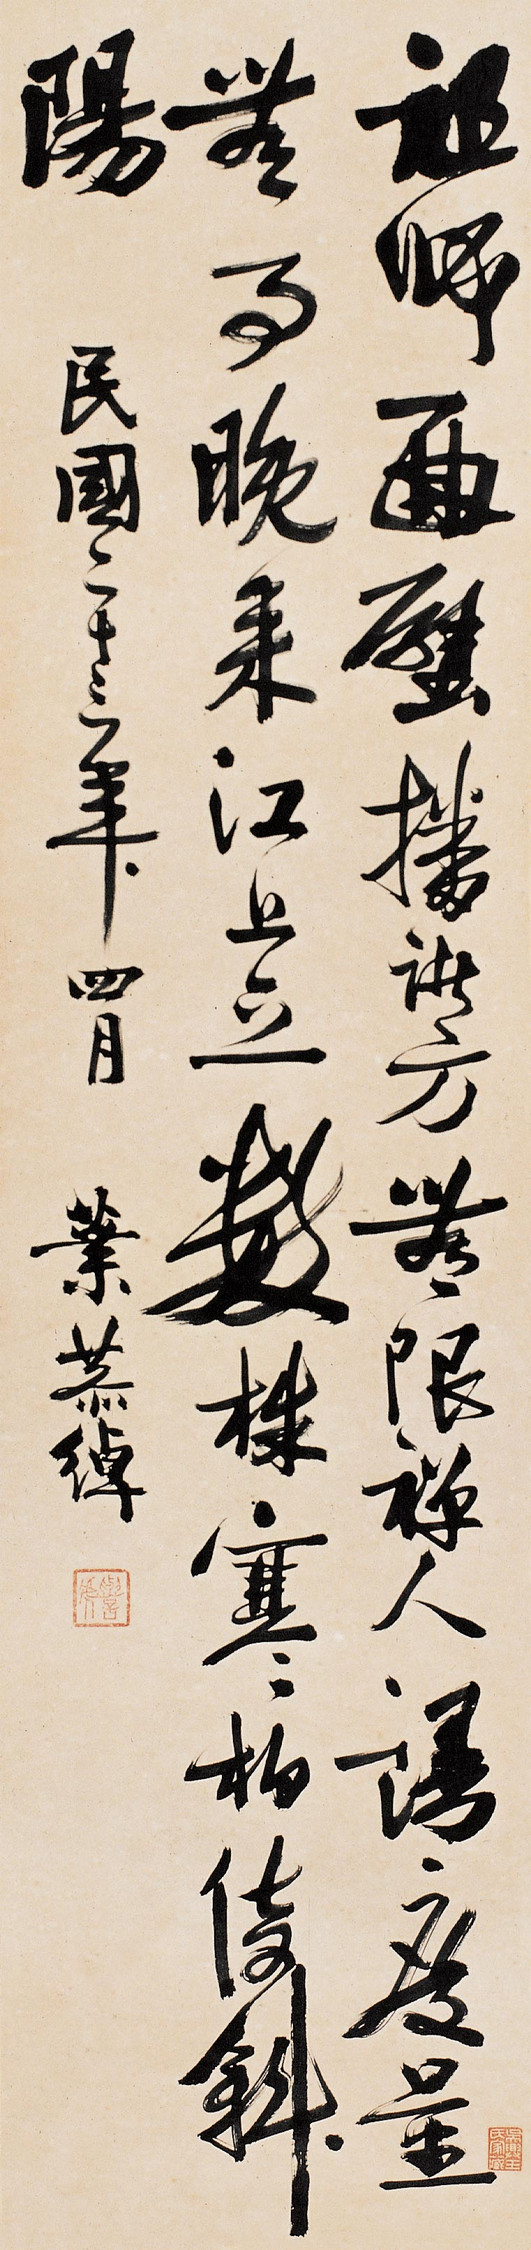 祖師面壁播諸方無限禪人謾度量
無事晚來江上立數株寒柏倚斜
陽
民國二十三年四月
葉恭綽